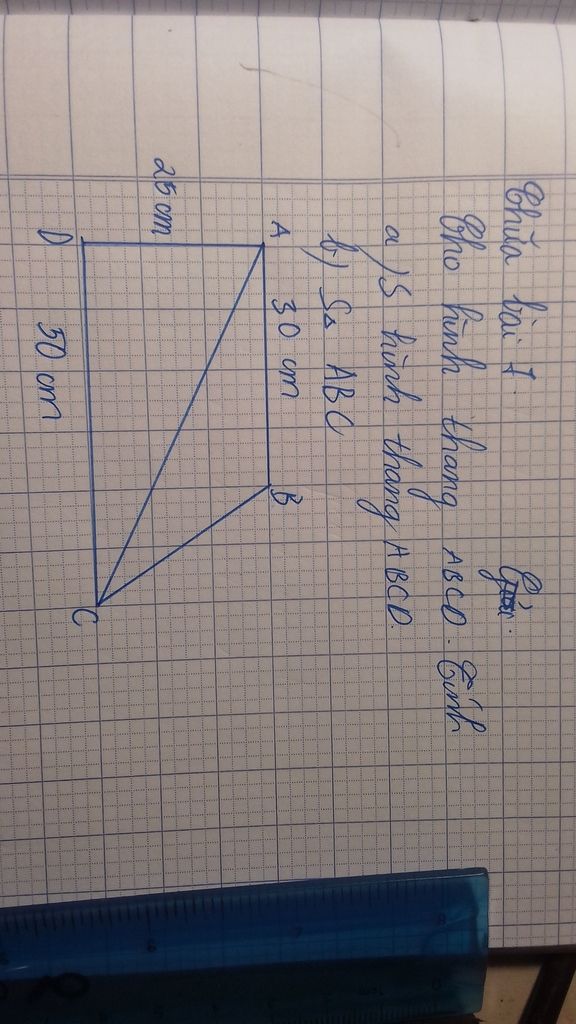 Chữa bài 1. Giải.
Cho hình thang ABCD. Tính
a) S hình thang ABCD.
b) S△ ABC
A 30 cm B
25 cm
D 50 cm C